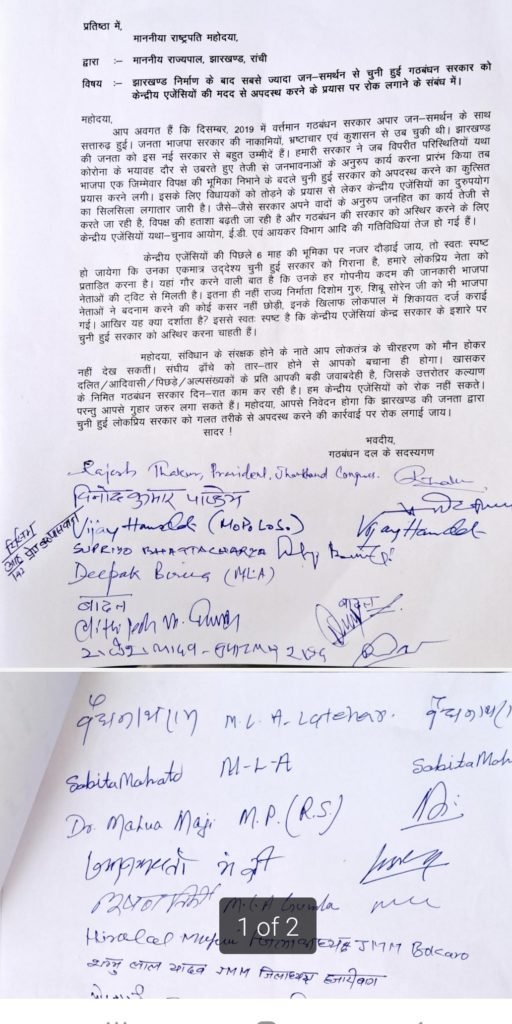 प्रतिष्ठा में,
माननीया राष्ट्रपति महोदया,
द्वारा :– माननीय राज्यपाल, झारखण्ड, रांची
विषय :– झारखण्ड निर्माण के बाद सबसे ज्यादा जन–समर्थन से चुनी हुई गठबंधन सरकार को
केन्द्रीय एजेंसियों की मदद से अपदस्थ करने के प्रयास पर रोक लगाने के संबंध में।
महोदया,
आप अवगत हैं कि दिसम्बर, 2019 में वर्त्तमान गठबंधन सरकार अपार जन–समर्थन के साथ
सत्तारूढ़ हुई। जनता भाजपा सरकार की नाकामियों, भ्रष्टाचार एवं कुशासन से उब चुकी थी। झारखण्ड
की जनता को इस नई सरकार से बहुत उम्मीदें हैं। हमारी सरकार ने जब विपरीत परिस्थितियों यथा
कोरोना के भयावह दौर से उबरते हुए तेजी से जनभावनाओं के अनुरुप कार्य करना प्रारंभ किया तब
भाजपा एक जिम्मेवार विपक्ष की भूमिका निभाने के बदले चुनी हुई सरकार को अपदस्थ करने का कुत्सित
प्रयास करने लगी। इसके लिए विधायकों को तोड़ने के प्रयास से लेकर केन्द्रीय एजेंसियों का दुरुपयोग
का सिलसिला लगातार जारी है। जैसे–जैसे सरकार अपने वादों के अनुरुप जनहित का कार्य तेजी से
करते जा रही है, विपक्ष की हताशा बढ़ती जा रही है और गठबंधन की सरकार को अस्थिर करने के लिए
केन्द्रीय एजेंसियों यथा–चुनाव आयोग, ई.डी. एवं आयकर विभाग आदि की गतिविधियां तेज हो गई हैं।
केन्द्रीय एजेंसियों की पिछले 6 माह की भूमिका पर नजर दौड़ाई जाय, तो स्वतः स्पष्ट
हो जायेगा कि उनका एकमात्र उद्देश्य चुनी हुई सरकार को गिराना है, हमारे लोकप्रिय नेता को
प्रताडित करना है। यहां गौर करने वाली बात है कि उनके हर गोपनीय कदम की जानकारी भाजपा
नेताओं की ट्विट से मिलती है। इतना ही नहीं राज्य निर्माता दिशोम गुरु, शिबू सोरेन जी को भी भाजपा
नेताओं ने बदनाम करने की कोई कसर नहीं छोड़ी, इनके खिलाफ लोकपाल में शिकायत दर्ज कराई
गई। आखिर यह क्या दर्शाता है? इससे स्वतः स्पष्ट है कि केन्द्रीय एजेंसियां केन्द्र सरकार के इशारे पर
चुनी हुई सरकार को अस्थिर करना चाहती हैं।
महोदया, संविधान के संरक्षक होने के नाते आप लोकतंत्र के चीरहरण को मौन होकर
नहीं देख सकती। संघीय ढाँचे को तार–तार होने से आपको बचाना ही होगा। खासकर
दलित/आदिवासी/पिछड़े/अल्पसंख्यकों के प्रति आपकी बड़ी जवाबदेही है, जिसके उत्तरोतर कल्याण
के निमित गठबंधन सरकार दिन–रात काम कर रही है। हम केन्द्रीय एजेंसियों को रोक नहीं सकते।
परन्तु आपसे गुहार जरुर लगा सकते हैं। महोदया, आपसे निवेदन होगा कि झारखण्ड की जनता द्वारा
चुनी हुई लोकप्रिय सरकार को गलत तरीके से अपदस्थ करने की कार्रवाई पर रोक लगाई जाय।
सादर !
भवदीय,
गठबंधन दल के सदस्यगण
Rajesh Thakur, President, Jharkhand Congress.
विनोद कुमार पाण्डेय
Vijay Hansdak (MP LOK SO.) Vijay Hansdak
SUPRIYO BHATTACHARYA
Deepak Birua (MLA)
बादल बादल
वैद्यनाथ राम M.L.A- Latehar. वैद्यनाथ राम
Sabita Mahato M-L-A Sabita Mah
Dr. Mahua Maji M.P. (R.S.)
M.L.A Gumla
1 of 2
Hiralal जिलाध्यक्ष JMM Bokaro
शम्भु लाल यादव JMM जिलाध्यक्ष हजारीबाग